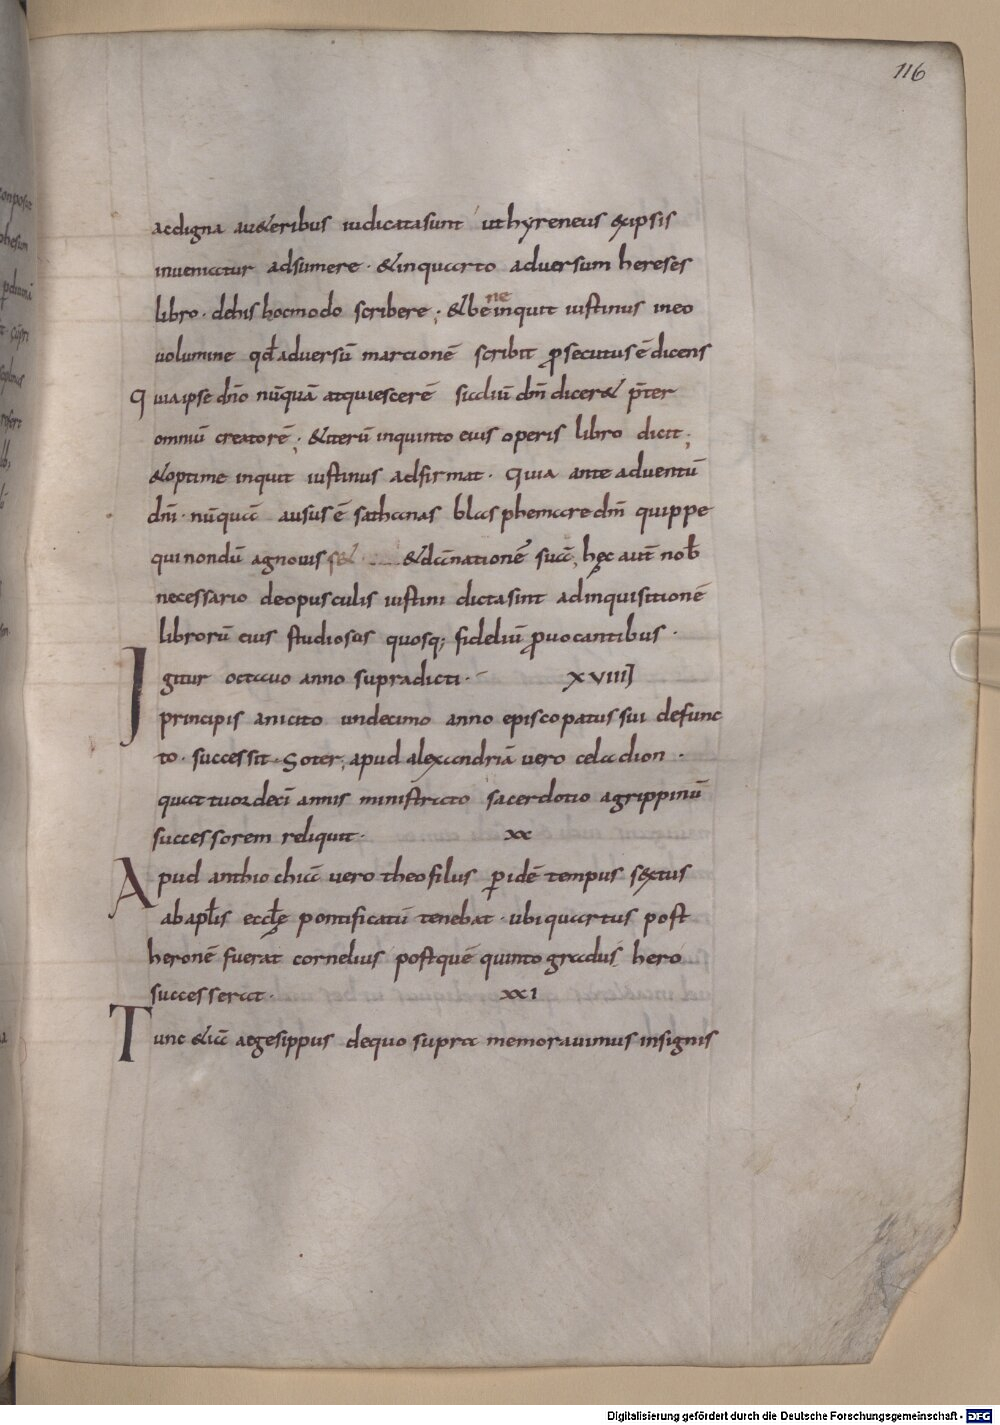 116
acdigna au&eribus iudicatasunt uthyreneus &ipsis
inueniatur adsumere · &inquarto aduersum hereses
libro · dehis hocmodo scribere ; &bene inquit iustinus ineo
uolumine qđaduersū marcionē scribit ꝓsecutusē dicens
Quiaipse dn̄o nūquā atquiescerē siadiū dm̄ dicer& p̄ter
omniū creatorē ; &iterū inquinto eius operis libro dicit ;
&optime inquit iustinus adfirmat · Quia ante aduentū
dn̄i · nūquā aususē sathanas blasphemare dm̄ quippe
quinondū agnouis &dānationē suā, hęc aut̄ nob̄
necessario deopusculis iustini dictasint adinquisitionē
librorū eius studiosus quosq; fideliū ꝓuocantibus ·
Igitur octauo anno supradicti · XVIIII
principis anicito undecimo anno episcopatus sui defunc
to · successit · Soter, apud alexandriā uero celadion ·
quattuordecī annis ministrato sacerdotio agrippinū
successorem reliquit · XX
Apud anthiochiā uero theofilus ꝑidē tempus sextus
abapłis eccłę pontificatū tenebat · ubi quartus post
heronē fuerat cornelius postquē quinto gradus hero
successerat · XXI
Tunc &iā aegesippus dequo supra memorauimus insignis
Digitalisierung gefördert durch die Deutsche Forschungsgemeinschaft - DFG